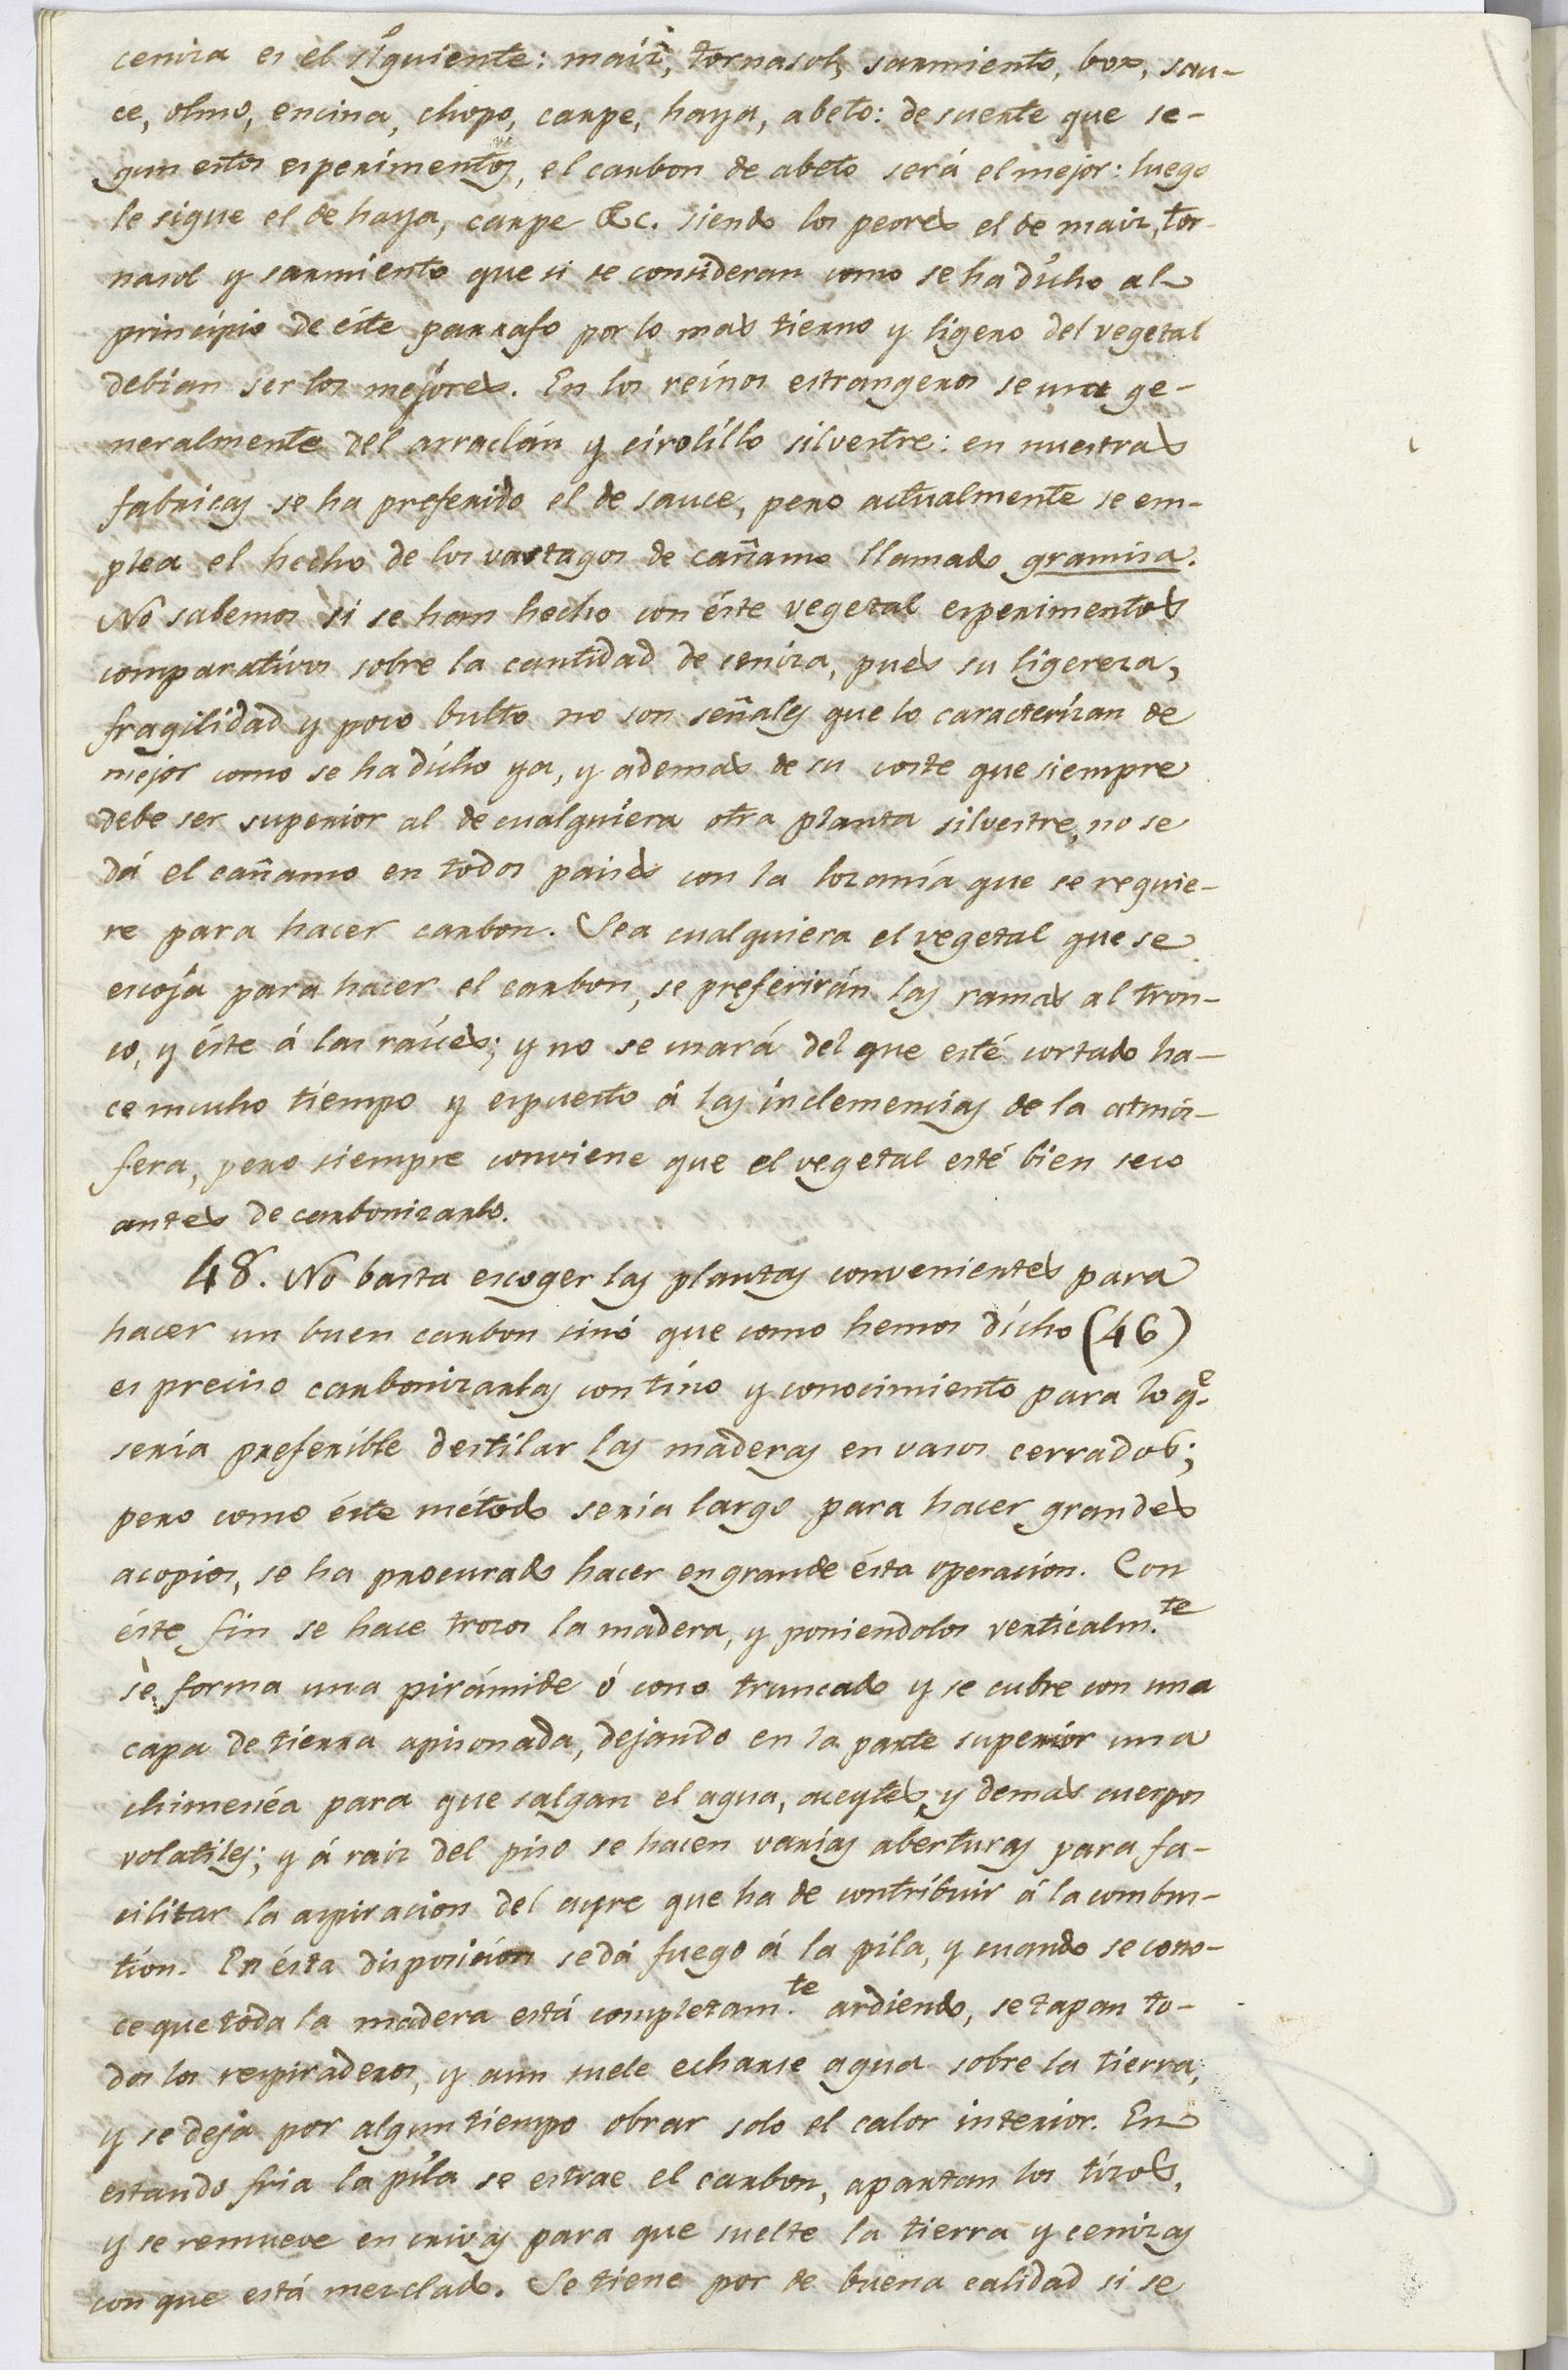 ceniza es el siguiente: maiz, tornasol, sarmiento, box, sau-
ce, olmo, encina, chopo, carpe, haya, abeto: de suerte que se-
gun estos esperimentos, el carbon de abeto será el mejor: luego
le sigue el de haya, carpe &c. siendo los peores el de maiz, tor-
nasol y sarmiento que si se consideran como se ha dicho al
principio de éste parrafo por lo mas tierno y ligero del vegetal
debian ser los mejores. En los reinos estrangeros se usa ge-
neralmente del arraclán y cirolillo silvestre: en nuestras
fabricas se ha preferido el de sauce, pero actualmente se em-
plea el hecho de los vastagos de cañamo llamado gramisa.
No sabemos si se han hecho con éste vegetal esperimentos
comparativos sobre la cantidad de ceniza, pues su ligereza,
fragilidad y poco bulto no son señales que lo caracterizan de
mejor como se ha dicho ya, y ademas de su coste que siempre
debe ser superior al de cualquiera otra planta silvestre, no se
dá el cañamo en todos paises con la lozania que se requie-
re para hacer carbon. Sea cualquiera el vegetal que se
escoja para hacer el carbon, se preferirán las ramas al tron-
co, y éste á las raíces; y no se usará del que esté cortado ha-
ce mucho tiempo y espuesto á las inclemencias de la atmós-
fera, pero siempre conviene que el vegetal esté bien seco
antes de carbonizarlo.
48. No basta escoger las plantas convenientes para
hacer un buen carbon sinó que como hemos dicho (46)
es preciso carbonizarlas con tino y conocimiento para lo q.e
seria preferible destilar las maderas en vasos cerrados;
pero como éste método seria largo para hacer grandes
acopios, se ha procurado hacer en grande ésta operacion. Con
éste fin se hace trozos la madera, y poniendolos verticalm.te
se forma una pirámide ó cono truncado y se cubre con una
capa de tierra apisonada, dejando en la parte superior una
chimenéa para que salgan el agua, aceytes, y demas cuerpos
volatiles; y á raiz del piso se hacen varias aberturas para fa-
cilitar la aspiracion del ayre que ha de contribuir á la combus-
tion. En ésta disposicion se dá fuego á la pila, y cuando se cono-
ce que toda la madera está completam.te ardiendo, se tapan to-
dos los respiraderos, y aun suele echarse agua sobre la tierra,
y se deja por algun tiempo obrar solo el calor interior. En
estando fria la pila se estrae el carbon, apartan los tizos,
y se remueve en crivas para que suelte la tierra y cenizas
con que está mezclado. Se tiene por de buena calidad si se